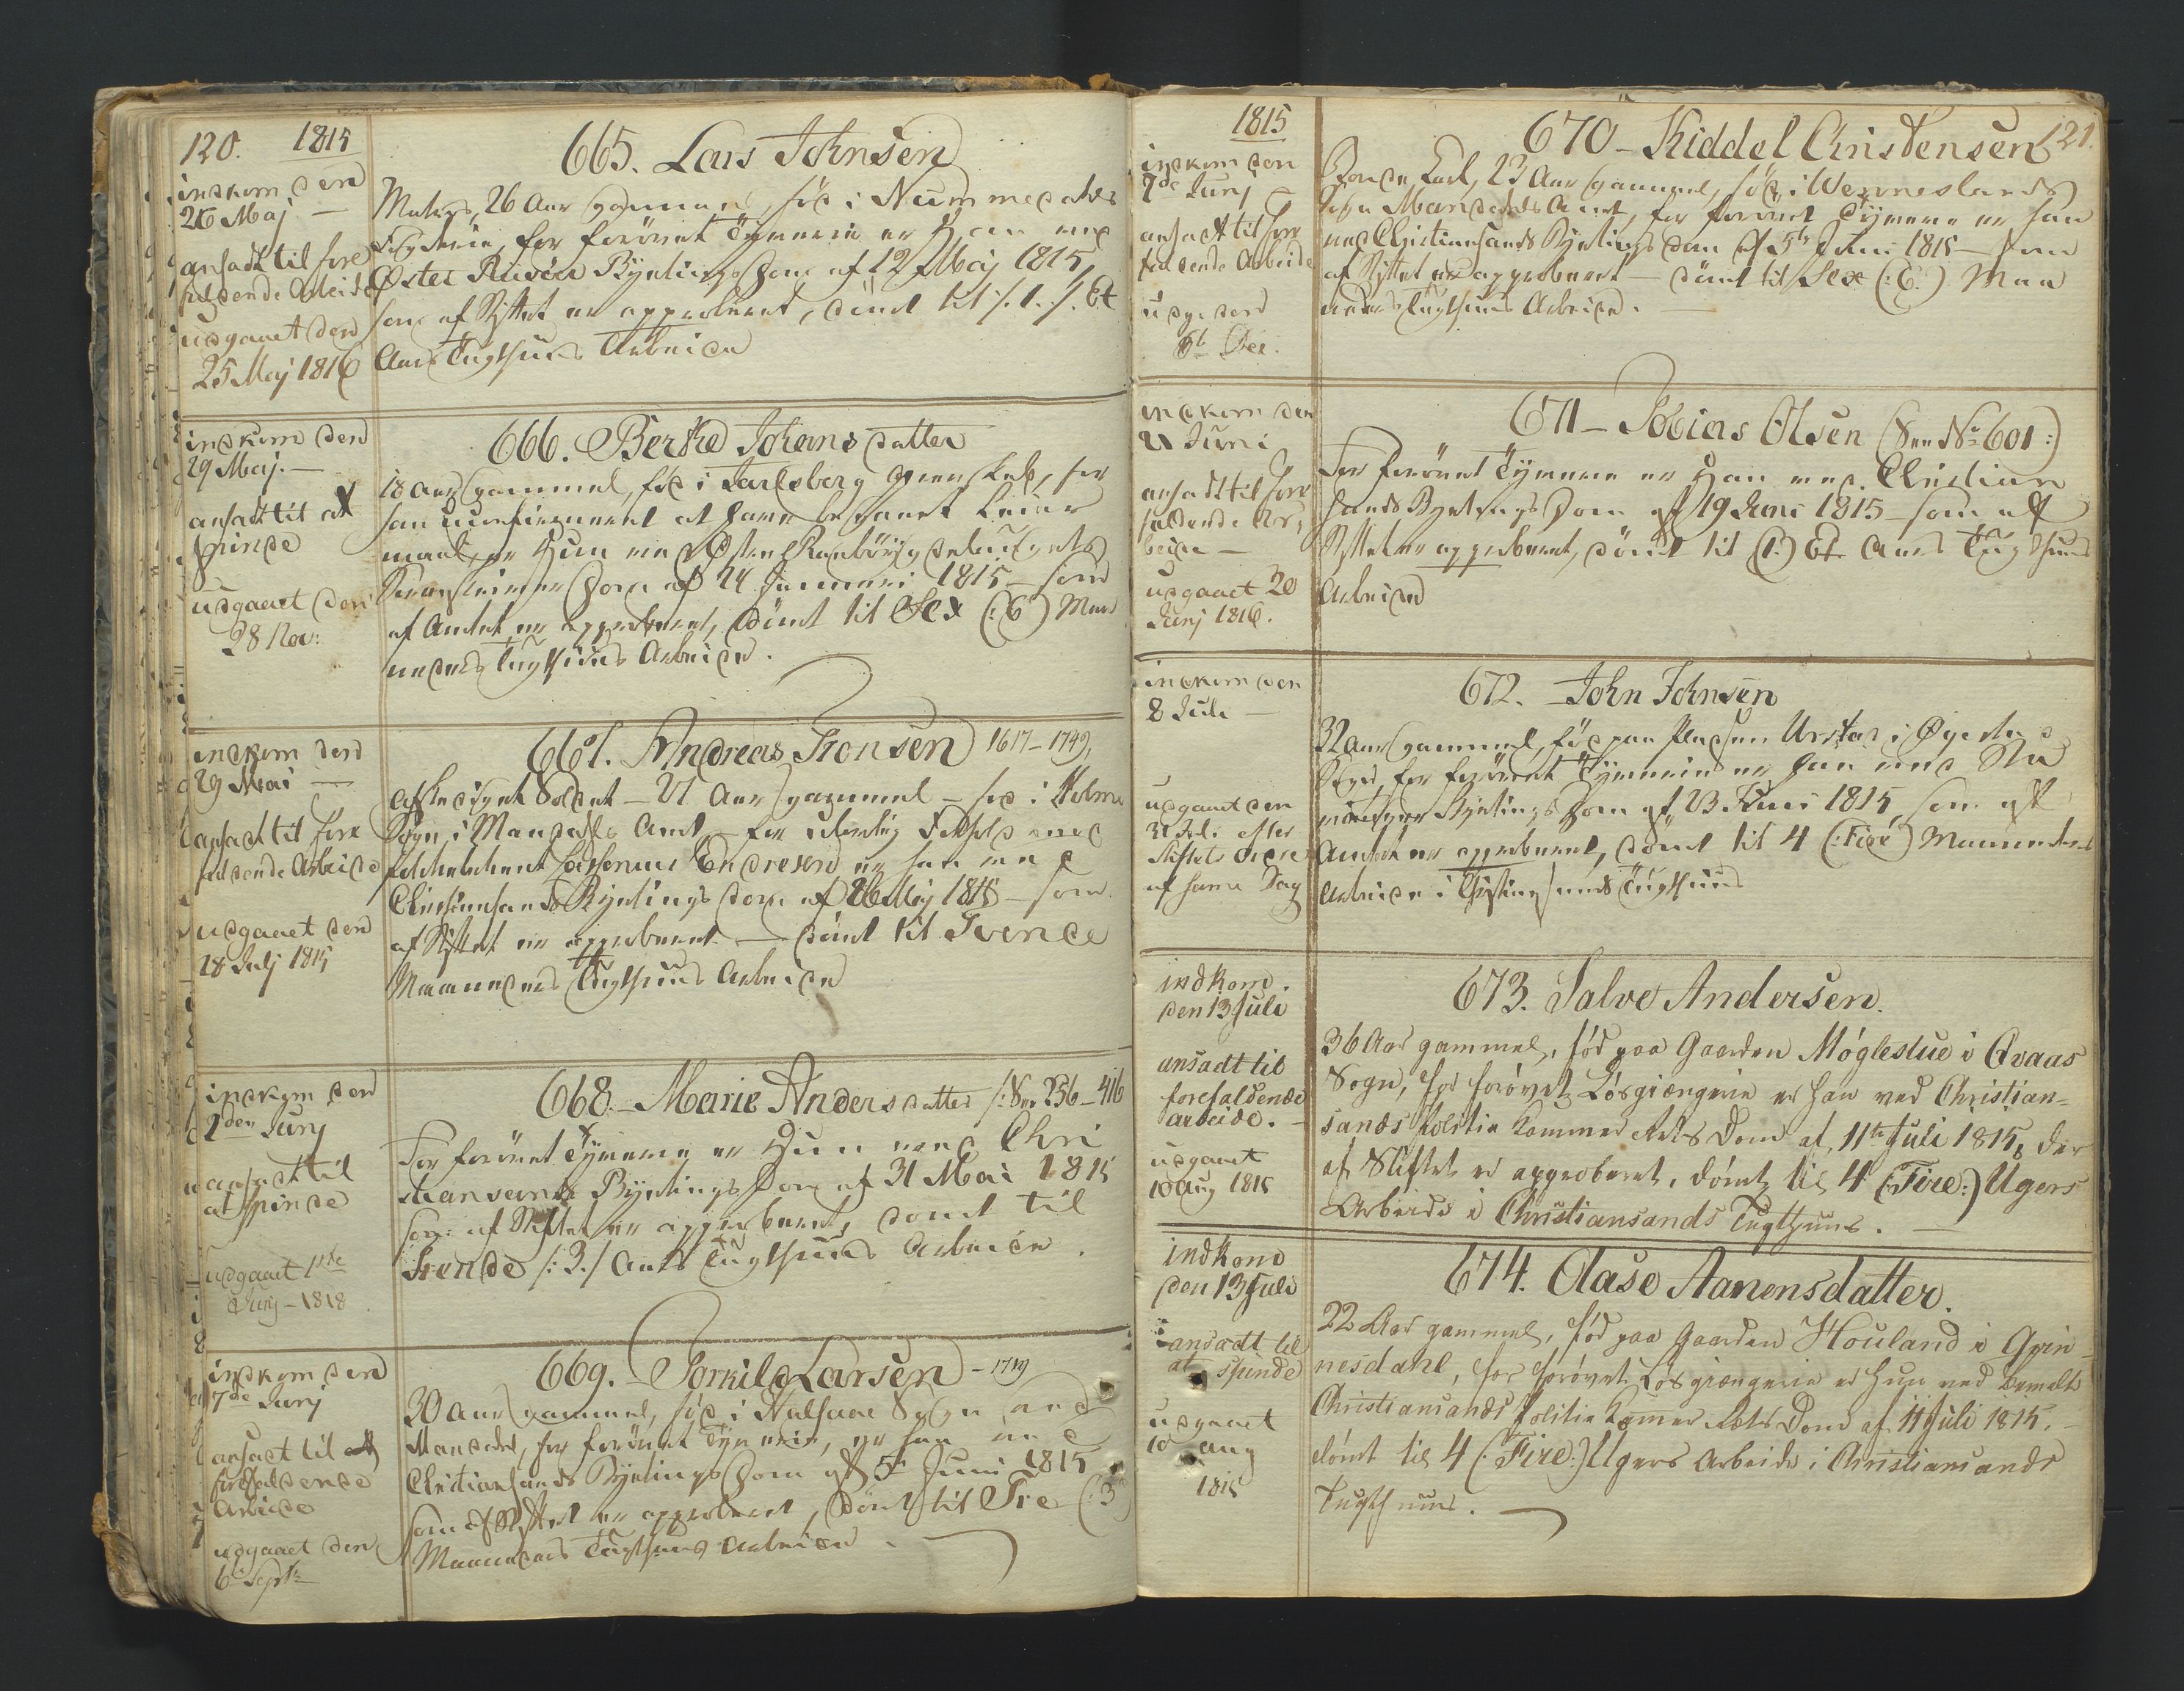 120. 1815
indkom den
26 Maj —
ansadt til fore
faldende Arbeide
udgaaet den
25 Maj 1816
665. Lars Johnsen
26 Aar gammel, föd i Nummedahls
Fogderie, for forövet Tyverie er Han ved
Øster Riisöer Bytings Dom af 12 Maj 1815
som af Stiftet er approberet, dömt til /:1:/ Et
Aars Tugthuus Arbeide
indkom den
29 Maj. —
ansadt til at
spinde
udgaaet den
28 Nov:
666. Berthe Johansdatter
18 Aar gammel, föd i Jarlsberg Grevskab, for
maal, er Hun ved
Dom af 24 Januari 1815 — som
af Amtet er approberet, dömt til Sex (:6) Maa
neders Tugthuus Arbeide.
indkom den
29 Mai —
ansadt til fore
faldende Arbeide
udgaaet den
28 Julj 1815
667. Andreas Tronsen 1617 — 1749,
afskediget Soldat — 21 Aar gammel — föd i Holme
Sogn i Mandahls Amt — for ulovlig Forhold med
Endresen er han ved
Christiansands Bytings Dom af 26 Maj 1815 — som
af Stiftet er approberet — dömt til Tvende
Maaneders Tugthuus Arbeide
indkom den
2den Junj
ansadt til
at spinde
udgaaet 1ste
Junj — 1818
668. — Marie Andersdatter /: See 256 — 416
For forövet Tyverie er Hun ved Chri
stiansands Bytings Dom af 31 Mai 1815
som af Stiftet er approberet, dömt til
Trende /:3:/ Aars Tugthuus Arbeide.
indkom den
7de Junj
ansadt til
forefaldende
Arbeide
udgaaet den
6 Septbr
669. — Torkild Larsen — 1719
30 Aar gammel, föd i Halsaae Sogn ved
Mandahl, for forövet Tyverie, er han ved
Christiansands Bytings Dom af 5te Juni 1815
som af Stiftet er approberet, dömt til Tre (:3)
Maaneders Tugthuus Arbeide.
1815
indkom den
7de Junj
ansadt til fore
faldende Arbeide
udg. den
6te Dec.
670 — Kiddel Christensen 121.
Bonde Karl, 23 Aar gammel, föd i Wenneslands
Sogn Mandahls Amt, for forövet Tyverie er han
ved Christiansands Bytings Dom af 5te Juni 1815 — som
af Stiftet er approberet — dömt til Sex (:6:) Maa
neders Tugthuus Arbeide. —
indkom den
21 Juni
ansadt til fore
faldende Ar-
beide —
udgaaet 20
Junj 1816.
671 — Tobias Olsen (See No 601:)
For forövet Tyverie er Han ved Christian
sands Bytings Dom af 19 Juni 1815 — som af
Stiftet er approberet, dömt til (1:) Et Aars Tugthuus
Arbeide
indkom den
8 Juli —
udgaaet den
31 Juli efter
Stiftets Ordre
af samme Dag
672. — John Johnsen
32 Aar gammel, föd paa Pladsen Urstad i Øyestad
Sogn, for forövet Tyverie er han ved
Bytings Dom af 23 Juni 1815, som af
Amtet er approberet, dömt til 4 (:Fire) Maaneders
Arbeide i Christiansands Tugthuus
indkom.
den 13 Juli
ansadt til
forefaldende
arbeide. —
udgaaet
10 Aug 1815
673. Salve Andersen.
36 Aar gammel, föd paa Gaarden Møglestue i Qvaas
Sogn, for forøvet Løsgiængerie er han ved Christian-
sands Politie Kammer Rets Dom af 11te Juli 1815, der
af Stiftet er approberet, dømt til 4 (:Fire:) Ugers
Arbeide i Christiansands Tugthuus. —
indkom
den 13 Juli
ansadt til
at spinde
udgaaet
10 Aug
1815
674. Aase Aanensdatter.
22 Aar gammel, föd paa Gaarden Houland i Grin-
nesdahl, for forøvet Løsgiængerie er hun ved bemelte
Christiansands Politie Kammer Rets Dom af 11 Juli 1815. —
dömt til 4 (:Fire:) Ugers Arbeide i Christiansands
Tugthuus. —